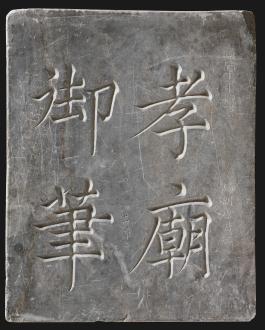 孝廟
御筆